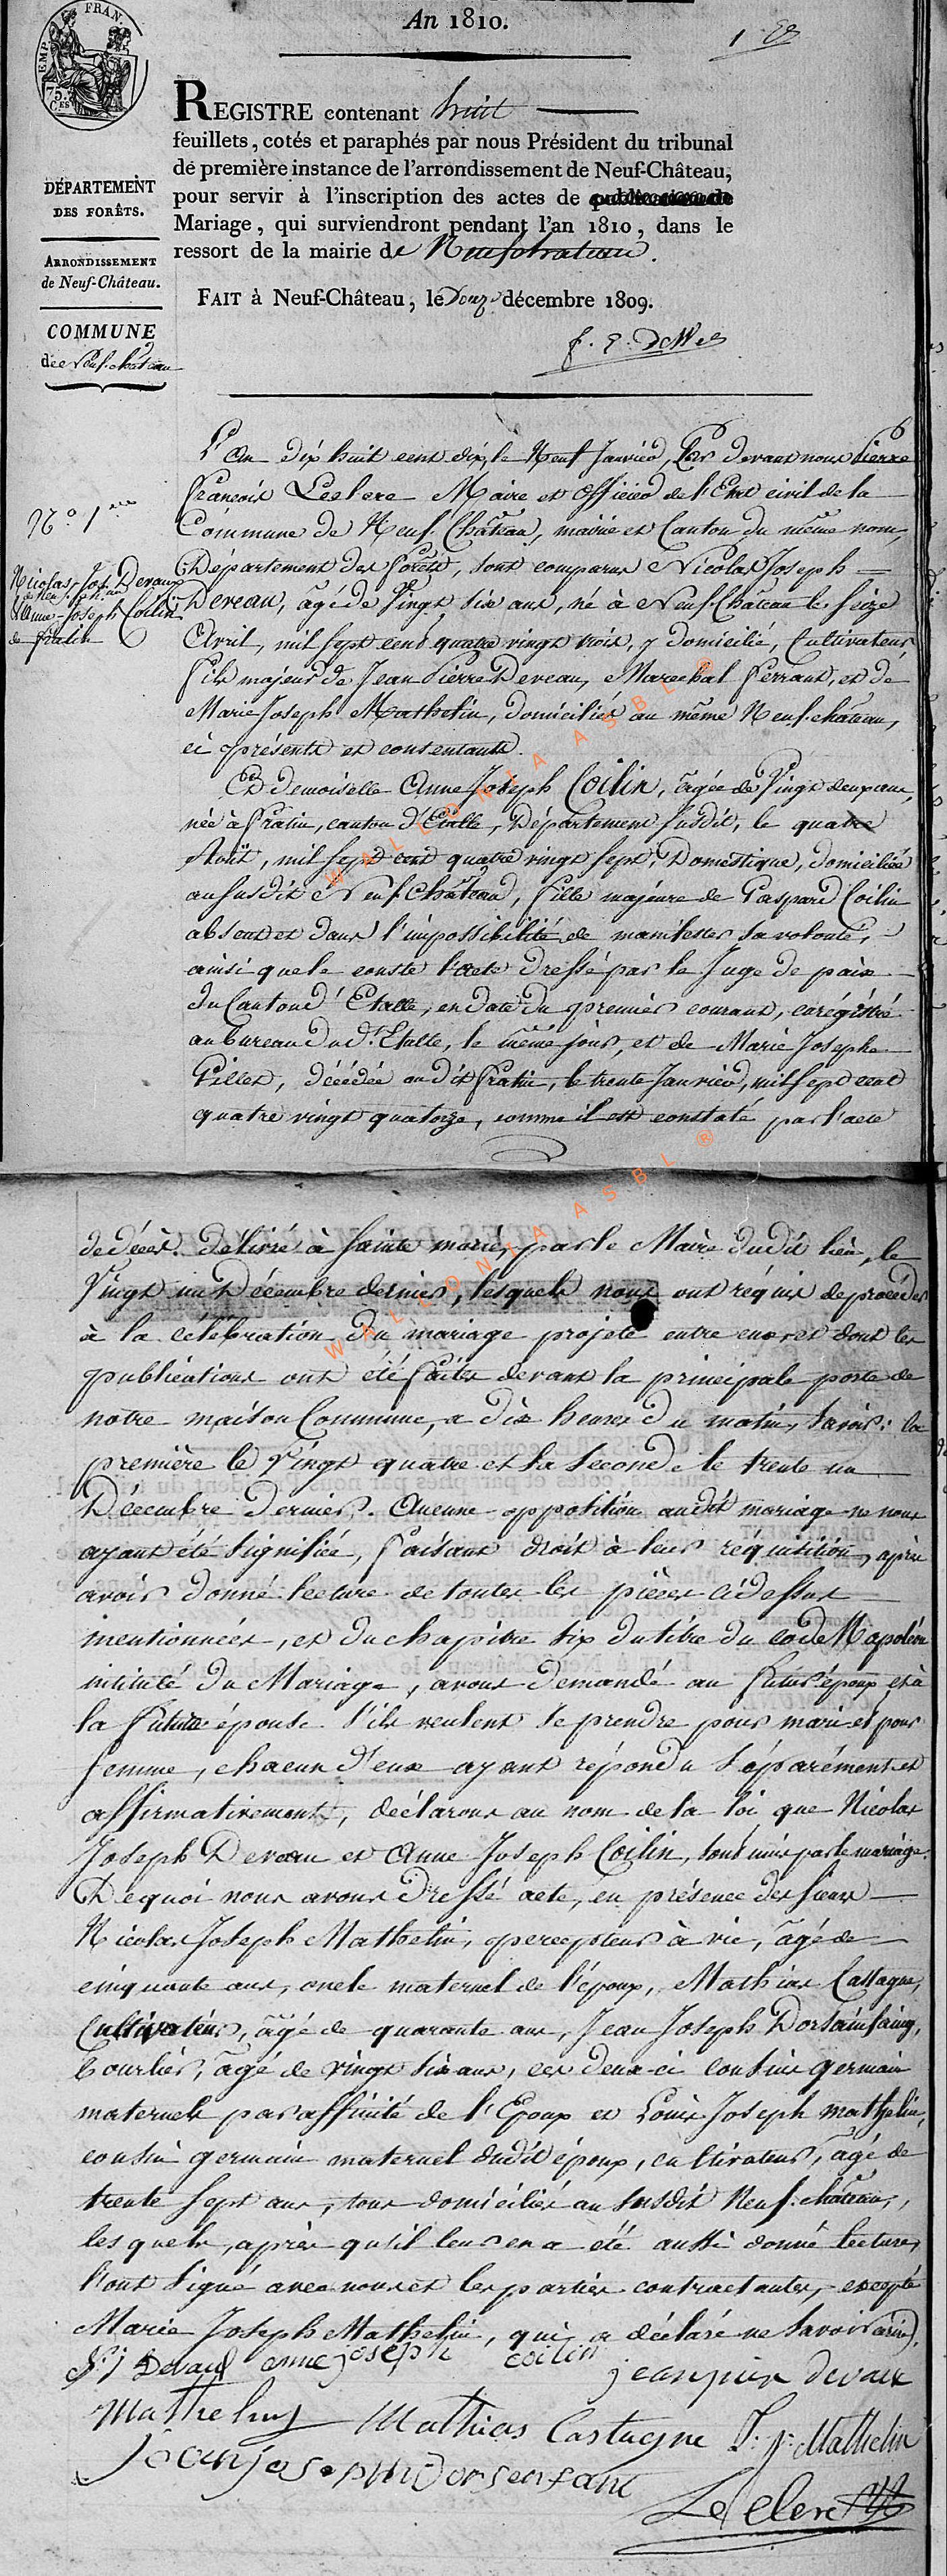 An 1810.
1er
EMP. FRAN.
75. Ces
REGISTRE contenant huit
feuillets, cotés et paraphés par nous Président du tribunal
de première instance de l'arrondissement de Neuf-Château,
pour servir à l'inscription des actes de
Mariage, qui surviendront pendant l'an 1810, dans le
ressort de la mairie de Neufchateau.
FAIT à Neuf-Château, le Douze décembre 1809.
DÉPARTEMENT
DES FORÊTS.
ARRONDISSEMENT
de Neuf-Château.
COMMUNE
de Neuf-Chateau
N.o 1.ere
Nicolas-Jos. Devaux
de Neufchateau
& Anne-Joseph Coilin
de fratin
L'an dix huit cent dix, le Neuf Janvier, Par devant nous Pierre
françois Leclerc Maire et officier de l'Etat civil de la
Commune de Neuf-Château, mairie et Canton du même nom,
Département des Forêts, sont comparus Nicolas Joseph
Deveau, âgé de Vingt six ans, né à Neuf-Château le Seize
Avril, mil sept cent quatre vingt trois, y domicilié, Cultivateur
fils majeur de Jean Pierre Deveau, Marechal ferrant, et de
Marie Joseph Mathelin, domiciliés au même Neuf-château,
ci présents et consentants.
Et demoiselle Anne Joseph Coilin, âgée de Vingt deux ans,
née à fratin, canton d'Etalle, Département susdit, le quatre
Août, mil sept cent quatre vingt sept, Domestique, domiciliée
au susdit Neuf Château, fille majeure de Gaspard Coilin
absent et dans l'impossibilité de manifester sa volonté,
ainsi que le conste l'acte dressé par le Juge de paix
du Canton d'Etalle, en date du premier courant, enrégistré
au bureau du dt. Etalle, le même jour, et de Marie Josephe
Gillet, décédée au dit fratin, le trente Janvier, mil sept cent
quatre vingt quatorze, comme il est constaté par l'acte
de décès. délivré à Sainte marie, par le Maire dudit lieu, le
Vingt un Décembre dernier, lesquels nous ont réquis de procéder
à la célébration du mariage projeté entre eux et dont les
publications ont été faites devant la principale porte de
notre maison Commune, a dix heures du matin, savoir: la
première le Vingt quatre et la seconde le trente un
Décembre dernier. Aucune opposition audit mariage ne nous
ayant été signifiée, faisant droit à leur réquisition, après
avoir donné lecture de toutes les pièces ci dessus
mentionnées, et du chapitre six du titre du code Napoléon
intitulé du Mariage, avons demandé au futur époux et à
la future épouse s'ils veulent se prendre pour mari et pour
femme, chacun d'eux ayant répondu séparément et
affirmativement, déclarons au nom de la loi que Nicolas
Joseph Deveau et Anne Joseph Coilin, sont unis par le mariage.
De quoi nous avons dressé acte, en présence des sieurs
Nicolas Joseph Mathelin, percepteur à vie, âgé de
cinquante ans, oncle maternel de l'époux, Mathias Castagne,
Cultivateur, âgé de quarante ans, Jean Joseph Dorsainfaing,
bourlier, âgé de vingt six ans, ces deux-ci cousins germain
maternels par affinité de l'Epoux et Louis Joseph mathelin,
cousin germain maternel dudit époux, cultivateur, âgé de
trente sept ans, tous domiciliés au susdit Neuf-château,
lesquels, après qu'il leur en a été aussi donné lecture,
l'ont signé avec nous et les parties contractantes, excepté
Marie Joseph Mathelin, qui a déclaré ne savoir écrire.
N: j Devaux anne joseph coilin jean piere devaux
Mathelin Mathias Castagne L: J: Mathelin
jean joseph Dorsenfant
Leclerc
WALLONIA ASBL ®
WALLONIA ASBL ®